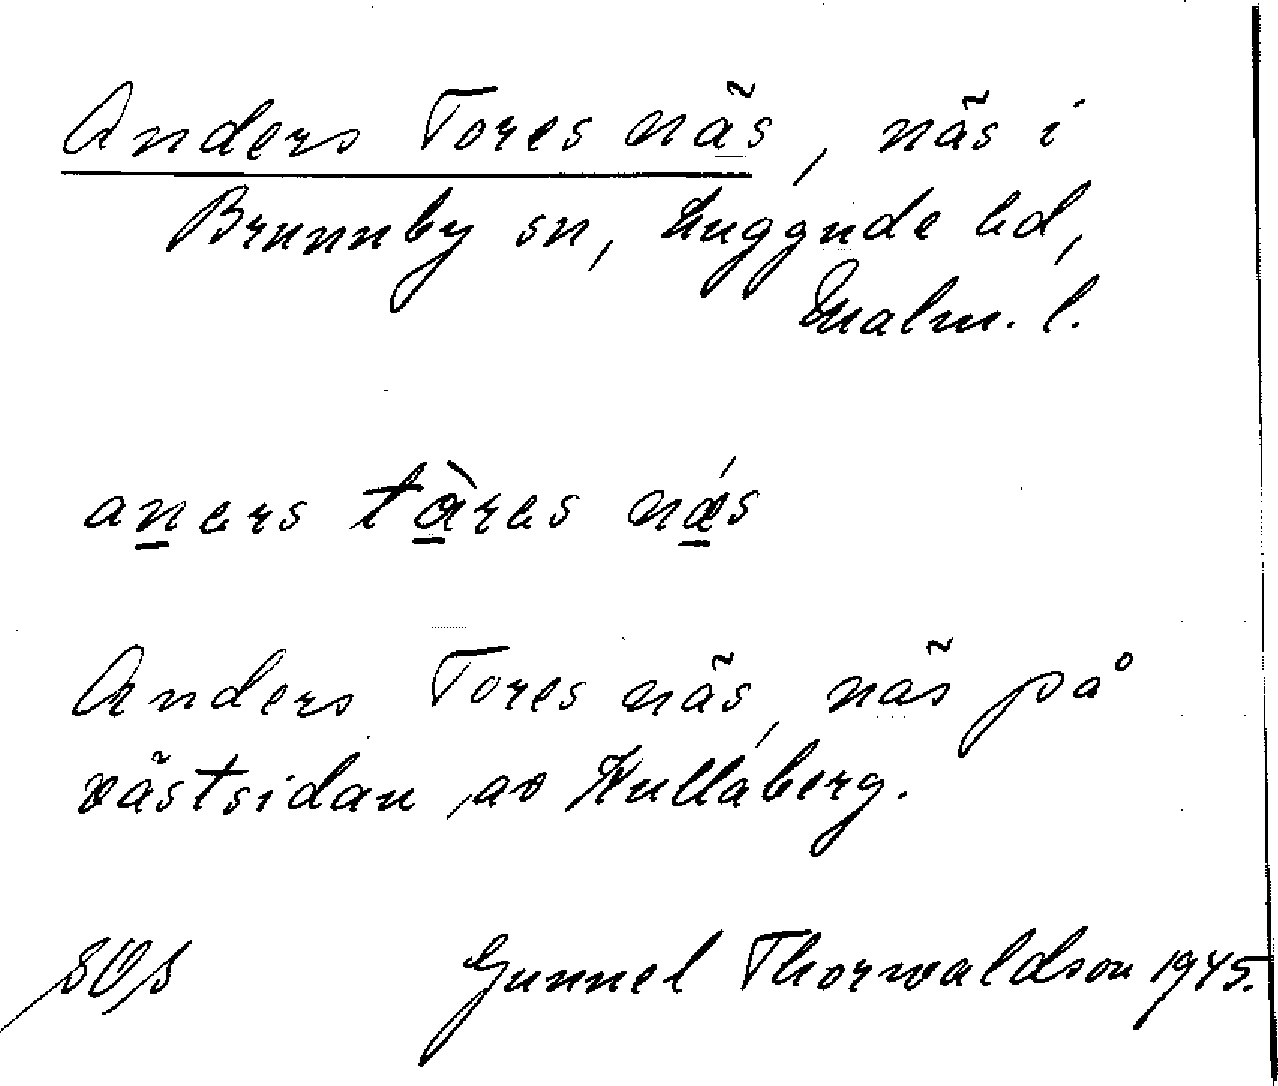 Anders Tores näs, näs i
Brunnby sn, Luggude hd,
Malm. l.
aners tàres nǽs
Anders Tores näs, näs på
västsidan av Kullaberg.
SOS Gunnel Thorwaldson 1945.